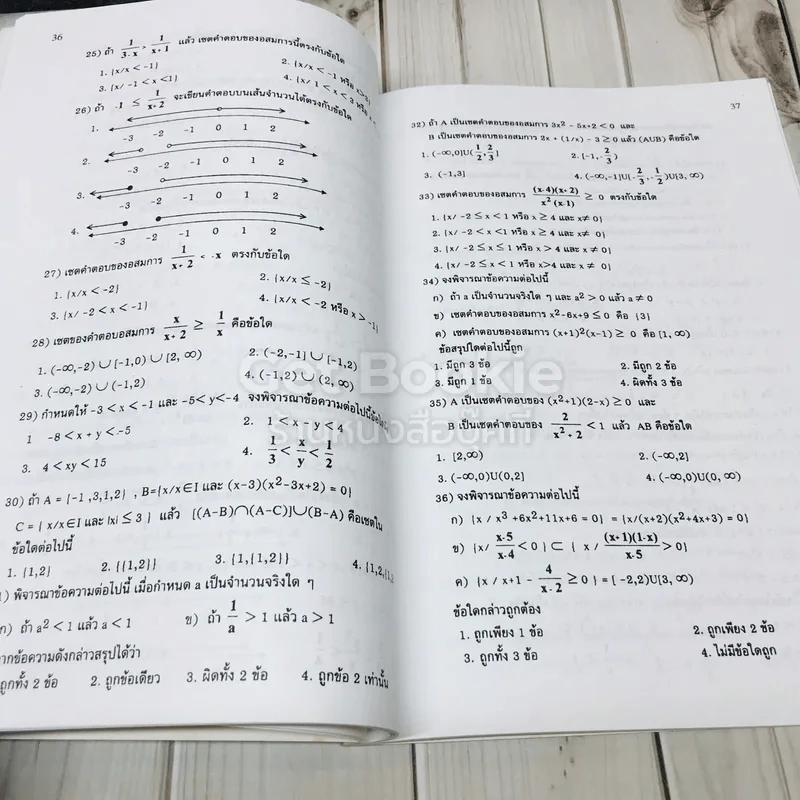 36
25) ถ้า 1/(3-x) > 1/(x+1) แล้ว เซตคำตอบของอสมการนี้ตรงกับข้อใด
1. {x/x < -1}
2. {x/x < -1 หรือ x>
3. {x/ -1 < x <1}
4. {x/ 1 < x < 3 หรือ
26) ถ้า -1 ≤ 1/(x+2) จะเขียนคำตอบบนเส้นจำนวนได้ตรงกับข้อใด
1. -3 -2 -1 0 1 2
2. -3 -2 -1 0 1 2
3. -3 -2 -1 0 1 2
4. -3 -2 -1 0 1 2
27) เซตคำตอบของอสมการ 1/(x+2) < -x ตรงกับข้อใด
1. {x/x < -2}
2. {x/x ≤ -2}
3. {x/ -2 < x < -1}
4. {x/x < -2 หรือ x > -1}
28) เซตของคำตอบอสมการ x/(x+2) ≥ 1/x คือข้อใด
1. (-∞,-2) ∪ [-1,0) ∪ [2, ∞)
2. (-2,-1] ∪ [-1,2)
3. (-∞,-2) ∪ (-1,2)
4. (-1,2) ∪ (2, ∞)
29) กำหนดให้ -3 < x < -1 และ -5< y <-4 จงพิจารณาข้อความต่อไปนี้
1 -8 < x + y < -5
2. 1 < x - y < 4
3. 4 < xy < 15
4. 1/3 < x/y < 1/2
30) ถ้า A = {-1 ,3,1,2} , B={x/x∈I และ (x-3)(x²-3x+2) = 0}
C = { x/x∈I และ |x| ≤ 3 } แล้ว [(A-B)∩(A-C)]∪(B-A) คือเซตใน
ข้อใดต่อไปนี้
1. {1,2}
2. {{1,2}}
3. {1,{1,2}}
4. {1,2,{1,2
1) พิจารณาข้อความต่อไปนี้ เมื่อกำหนด a เป็นจำนวนจริงใด ๆ
ก) ถ้า a² < 1 แล้ว a < 1
ข) ถ้า 1/a > 1 แล้ว a > 1
ากข้อความดังกล่าวสรุปได้ว่า
ถูกทั้ง 2 ข้อ
2. ถูกข้อเดียว
3. ผิดทั้ง 2 ข้อ
4. ถูกข้อ 2 เท่านั้น
37
32) ถ้า A เป็นเซตคำตอบของอสมการ 3x² - 5x+2 < 0 และ
B เป็นเซตคำตอบของอสมการ 2x + (1/x) - 3 ≥ 0 แล้ว (A∪B) คือข้อใด
1. (-∞,0]∪(1/2,2/3]
2. [-1,-2/3)
3. (-1,3]
4. (-∞,-1]∪[-2/3,-1/2)∪[3, ∞)
33) เซตคำตอบของอสมการ (x-4)(x+2)/x²(x-1) ≥ 0 ตรงกับข้อใด
1. {x/ -2 ≤ x < 1 หรือ x ≥ 4 และ x≠ 0}
2. {x/ -2 < x <1 หรือ x ≥ 4 และ x≠ 0}
3. {x/ -2 ≤ x ≤ 1 หรือ x > 4 และ x ≠ 0}
4. {x/ -2 ≤ x < 1 หรือ x>4 และ x ≠ 0}
34) จงพิจารณาข้อความต่อไปนี้
ก) ถ้า a เป็นจำนวนจริงใด ๆ และ a² > 0 แล้ว a ≠ 0
ข) เซตของคำตอบของอสมการ x²-6x+9 ≤ 0 คือ {3}
ค) เซตของคำตอบของอสมการ (x+1)²(x-1) ≥ 0 คือ [1, ∞)
ข้อสรุปใดต่อไปนี้ถูก
1. มีถูก 3 ข้อ
2. มีถูก 2 ข้อ
3. มีถูก 1 ข้อ
4. ผิดทั้ง 3 ข้อ
35) A เป็นเซตคำตอบของ (x²+1)(2-x) ≥ 0 และ
B เป็นเซตคำตอบของ 2/(x²+2) < 1 แล้ว AB คือข้อใด
1. [2,∞)
2. (-∞,2]
3. (-∞,0)∪(0,2]
4. (-∞,0)∪(0,∞)
36) จงพิจารณาข้อความต่อไปนี้
ก) {x / x³ +6x²+11x+6 = 0} = {x/(x+2)(x²+4x+3) = 0}
ข) {x/ (x-5)/(x-4) < 0 } ⊂ { x / (x+1)(1-x)/(x-5) > 0}
ค) {x / x+1 - 4/(x-2) ≥ 0 } = [ -2,2)∪[3, ∞)
ข้อใดกล่าวถูกต้อง
1. ถูกเพียง 1 ข้อ
2. ถูกเพียง 2 ข้อ
3. ถูกทั้ง 3 ข้อ
4. ไม่มีข้อใดถูก
Got Bookie
ร้านหนังสือบุ๊คกี้